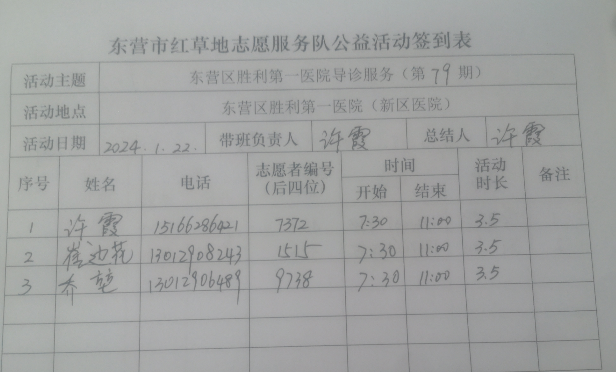 东营市红草地志愿服务队公益活动签到表
活动主题 东营区胜利第一医院导诊服务（第79期）
活动地点 东营区胜利第一医院（新区医院）
活动日期 2024.1.22. 带班负责人 许霞 总结人 许霞
序号 姓名 电话 志愿者编号（后四位） 时间 开始 结束 活动时长 备注
1 许霞 15166286421 7372 7:30 11:00 3.5
2 13012908243 1515 7:30 11:00 3.5
3 13012906489 9738 7:30 11:00 3.5